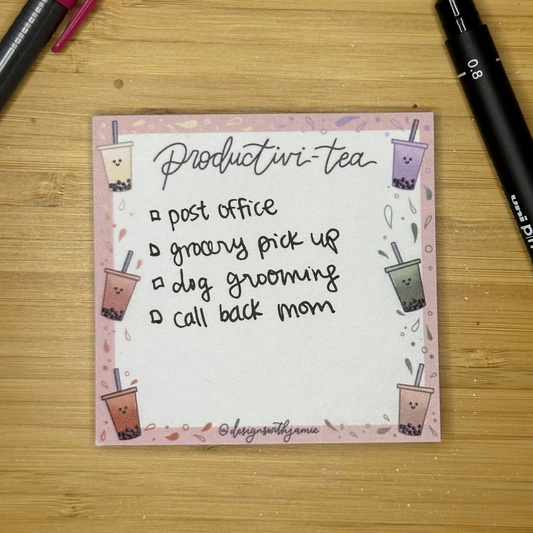 productivi-tea
post office
grocery pick up
dog grooming
call back mom
@designswithjamie
0.8
uni pin